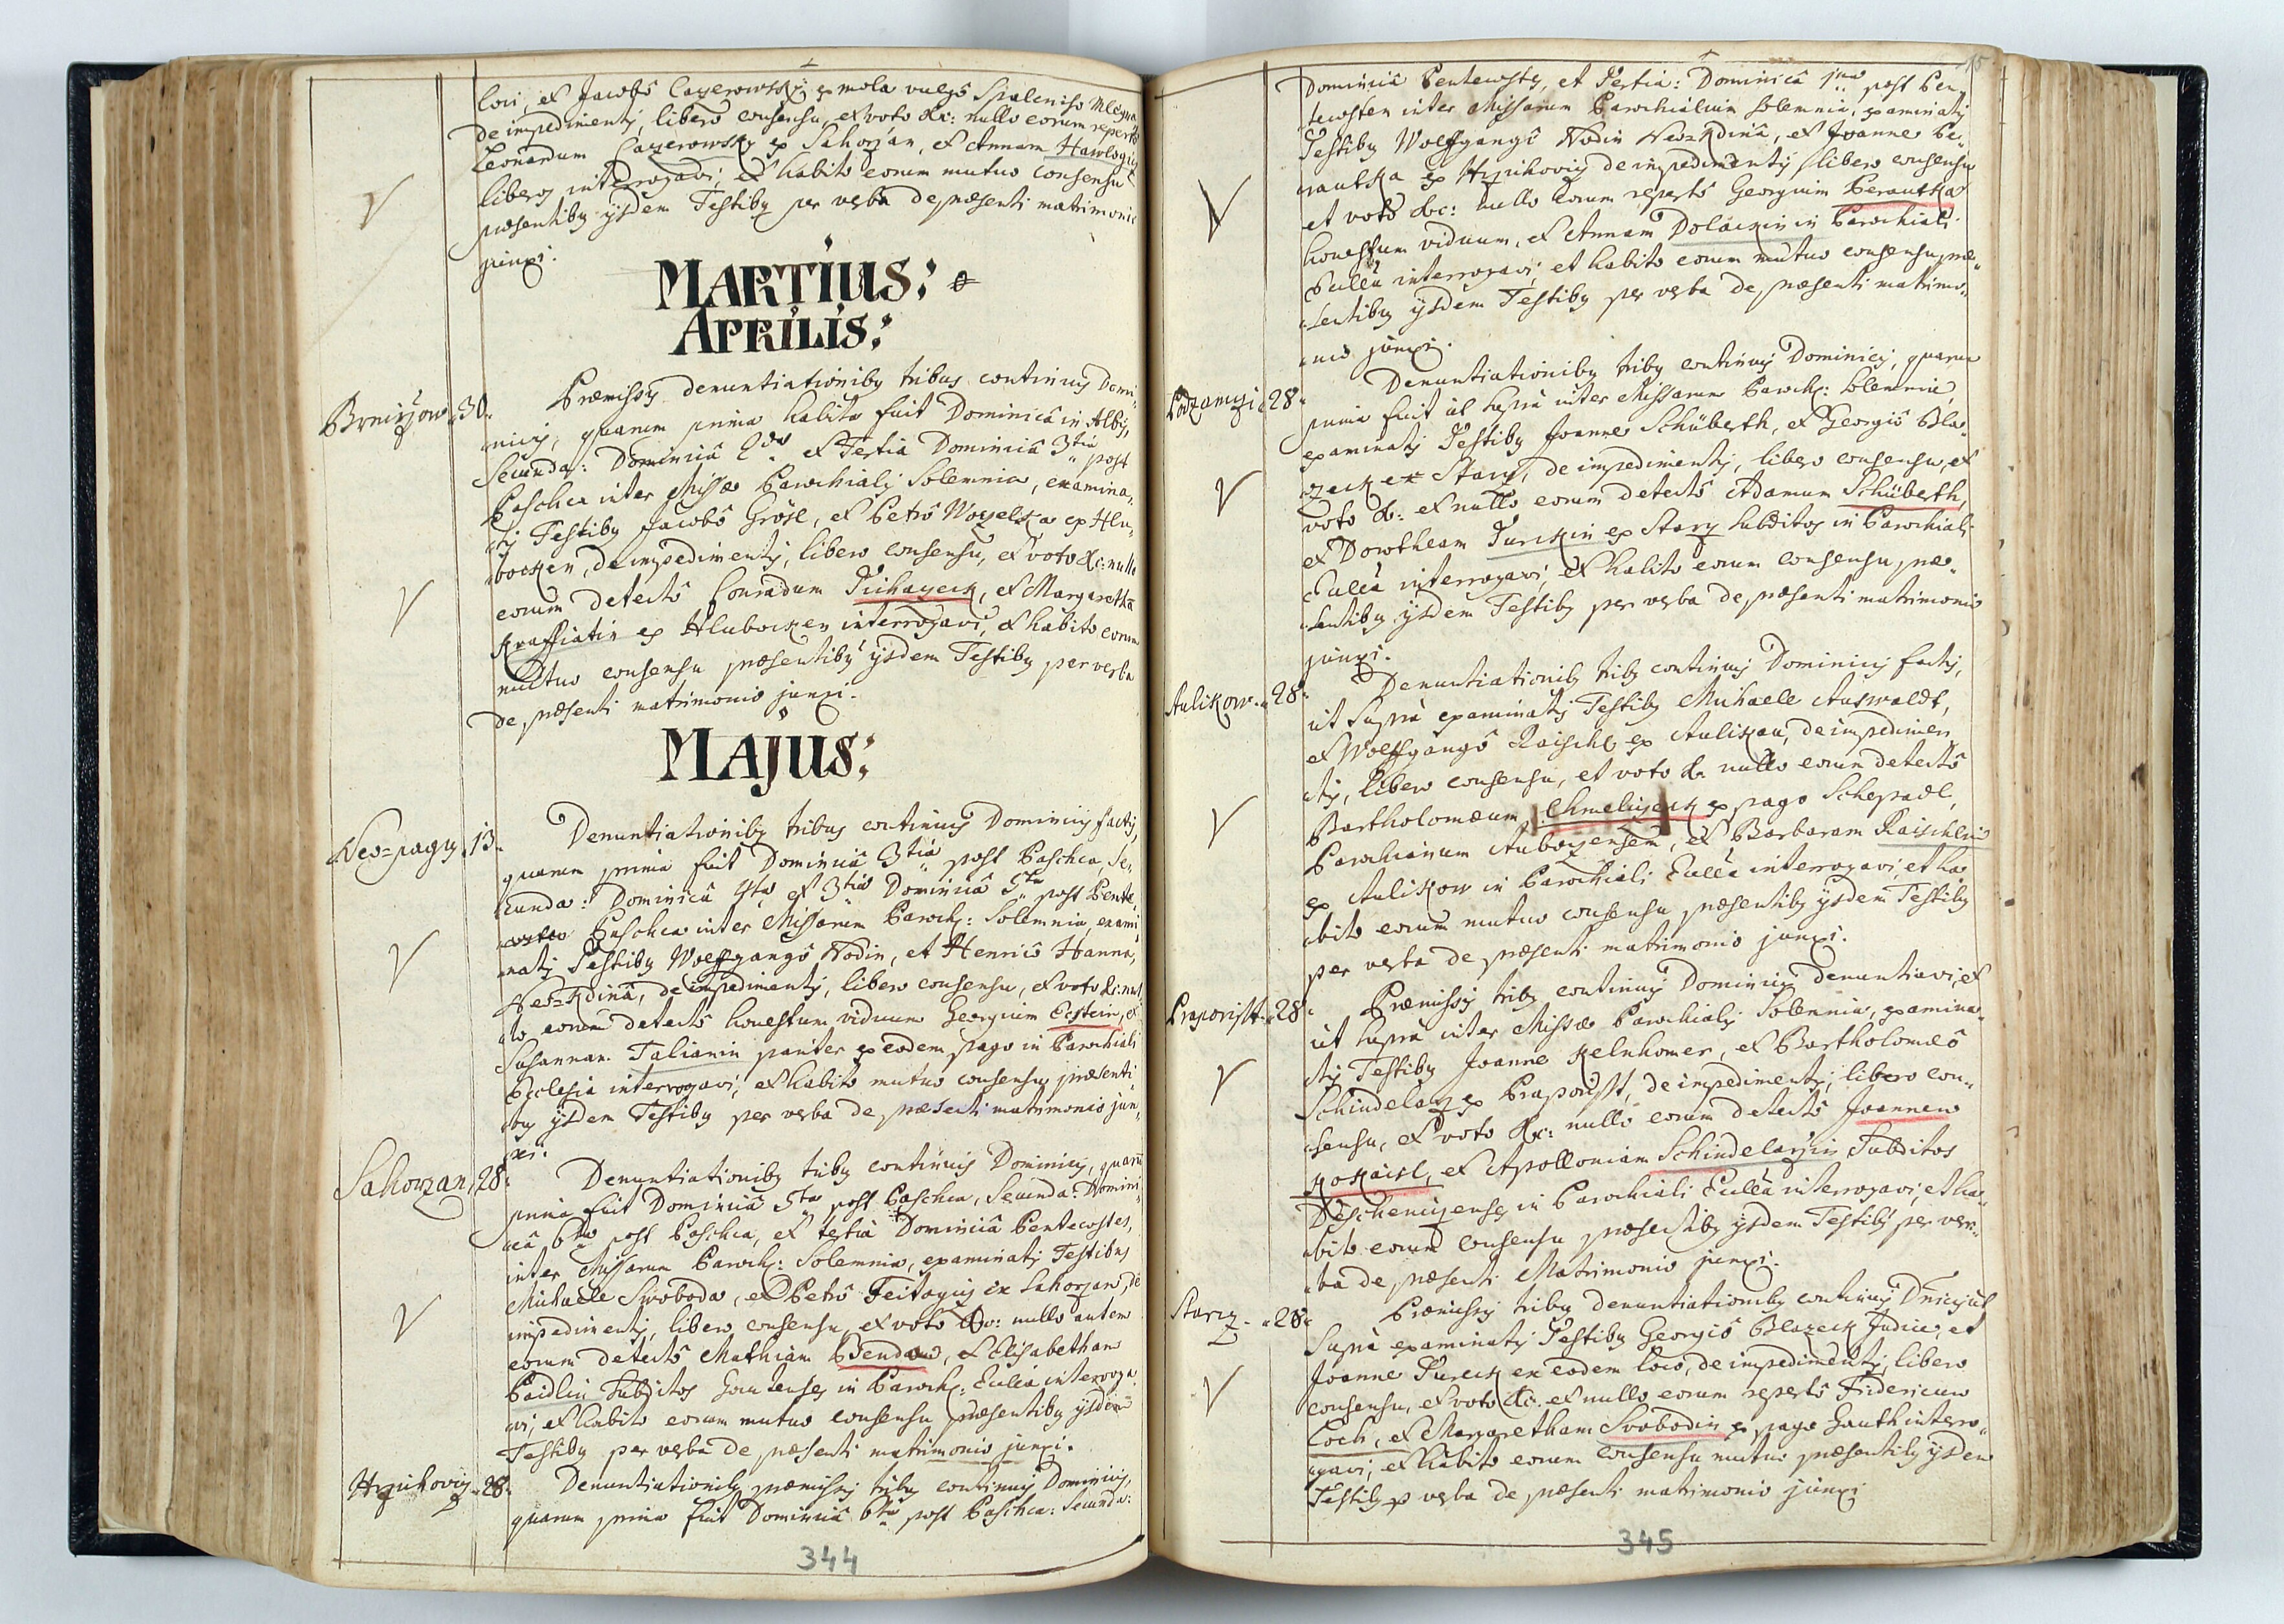 loci, et Jacobô Cazerowsky ex mola vulgô Spaleniso Mlegna
de impedimentis, liberô consensu, et voto &c: nullo eorum repertô
Leonardum Cazerowsky ex Sahorzan, et Annam Hawlogin
liberos interrogavi, et habito eorum mutuo consensu
præsentibus ijsdem Testibus per verba de præsenti matrimonio
junxi.
MARTIUS:
APRILIS:
Brnirzow 30.
Præmissis denuntiationibus tribus continuis Domi-
nicis, quarum prima habita fuit Dominicâ in Albis,
Secunda: Dominicâ 2da et Tertia Dominicâ 3tia post
Pascha inter Missæ Parochialis Solemnia, examina-
tis Testibus Jacobô Grösl, et Petrô Wozelka ex Hlu-
bocken, de impedimentis, libero consensu, et voto &c: nullo
eorum detectô Conradum Tichayeck, et Margaretha
Kraffiatin ex Hlubocken interrogavi, et habito eorum
mutuo consensu præsentibus ijsdem Testibus per verba
de præsenti matrimonio junxi.
MAJUS:
Neo=pagus 13.
Denuntiationibus tribus continuis Dominicis factis,
quarum prima fuit Dominicâ 3tia post Pascha, Se-
cunda: Dominicâ 4ta et 3tia Dominicâ 5ta post Pente
Pascha inter Missarum Paroch: Solemnia, exami
natis Testibus Wolffgangô Nodin, et Henricô Hanna,
Neo=Kdinâ, de impedimentis, libero consensu, et voto &c: nul
lo eorum detectô honestum viduum Georgium Eestein, et
Susannam Talianin pariter ex eodem pago in Parochiali
Ecclesia interrogavi, et habito mutuo consensu præsenti
bus ijsdem Testibus per verba de præsenti matrimonio jun
xi.
Sahorzan 28.
Denuntiationibus tribus continuis Dominicis, quarum
prima fuit Dominicâ 5ta post Pascha, Secunda: Domini
câ 6ta post Pascha, et tertia Dominicâ Pentecostes,
inter Missarum Paroch: Solemnia, examinatis Testibus
Michaële Swoboda, et Petrô Feitogin ex Sahorzan, de
impedimentis, libero consensu, et voto &c: nullo autem
eorum detectô Mathiam Bendam, et Elisabetham
Paidlin Subditos Gauthenses in Paroch: Ecclia interroga
vi, et habito eorum mutuo consensu præsentibus ijsdem
Testibus per verba de præsenti matrimonio junxi.
Hrzichovis 28.
Denuntiationibus præmissis tribus continuis Dominicis,
quarum prima fuit Dominicâ 6ta post Pascha: Secunda:
344
Dominicâ Pentecostes, et Tertia: Dominicâ 1ma post Pen
tecosten inter Missarum Parochialium Solemnia, examinatis
Testibus Wolffgangô Nodin Neo=Kdinâ, et Joanne Be-
rautka ex Hrzichovis de impedimentis, libero consensu
et voto &c: nullo eorum repertô Georgium Berautka
honestum viduum, et Annam Dolackin in Parochiali
Ecclia interrogavi, et habito eorum mutuo consensu, præ-
sentibus ijsdem Testibus per verba de præsenti matrimo-
nio junxi.
Podzamczi 28.
Denuntiationibus tribus continuis Dominicis, quarum
prima fuit ut supra inter Missarum Paroch: Solemnia,
examinatis Testibus Joanne Schüberth, et Georgiô Bla-
zeck ex Starz, de impedimentis, libero consensu, et
voto &c: et nullo eorum detectô Adamum Schüberth,
et Dorotheam Turckin ex Starz subditos in Parochiali
Ecclia interrogavi, et habito eorum consensu, præ-
sentibus ijsdem Testibus per verba de præsenti matrimonio
junxi.
Aulikow 28.
Denuntiationibus tribus continuis Dominicis factis,
ut supra examinatis Testibus Michaële Auswaldt,
et Wolffgangô Raischl ex Aulikau, de impedimen
tis, libero consensu, et voto &c nullo eorum detectô
Bartholomæum Chmelizeck ex pago Schepadl,
Parochianum Auborzensem, et Barbaram Raischlin
ex Aulikow in Parochiali Ecclia interrogavi, et ha
bito eorum mutuo consensu præsentibus ijsdem Testibus
per verba de præsenti matrimonio junxi.
Praporischt 28.
Præmissis tribus continuis Dominicis denuntiavi, et
ut supra inter Missæ Parochialis Solemnia, examina-
tis Testibus Joanne Kelnhomer, et Bartholomæô
Schindelarz ex Praporischt, de impedimentis, libero con-
sensu, et voto &c: nullô eorum detectô Joannem
Kokaisl, et Apolloniam Schindelarzin Subditos
Teschenizenses in Parochiali Ecclia interrogavi, et ha-
bito eorum consensu præsentibus ijsdem Testibus per ver-
ba de præsenti Matrimonio junxi.
Starz 28.
Præmissis tribus denuntiationibus continuis Dnicis ut
supra examinatis Testibus Georgiô Blazeck Judice, et
Joanne Tureck ex eodem loco, de impedimentis, libero
consensu, et voto &c. et nullo eorum repertô Fridericum
Loch, et Margaretham Svobodin ex pago Gauth interro-
gavi, et habito eorum consensu mutuo præsentibus ijsdem
Testibus per verba de præsenti matrimonio junxi
345